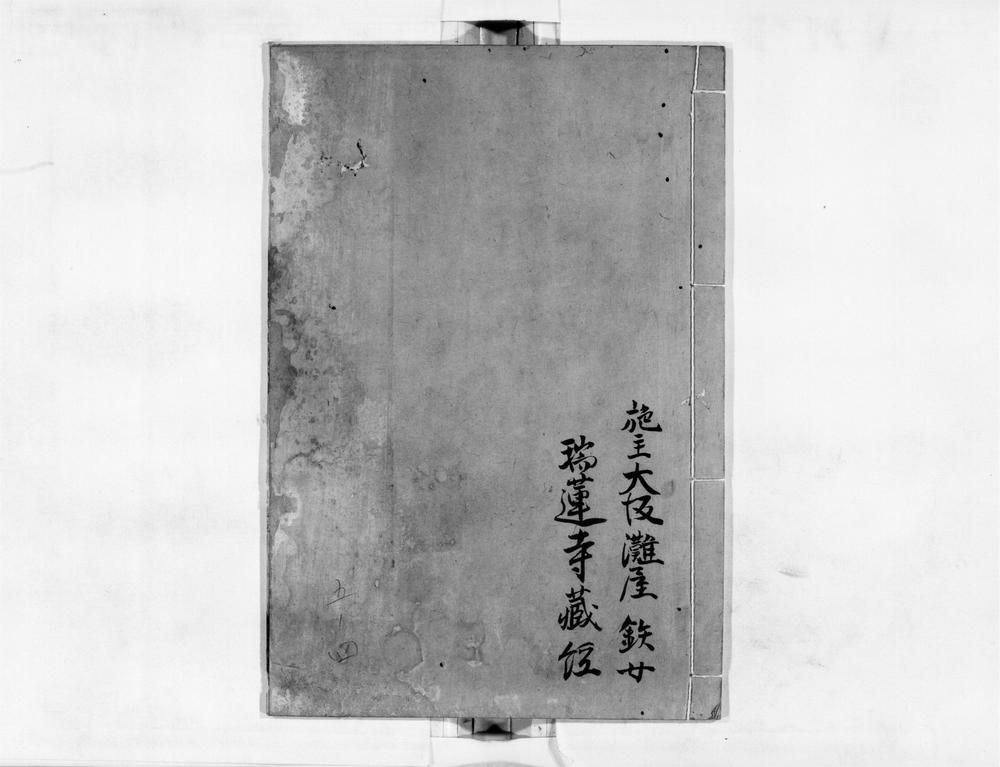 施主大阪灘屋 鉄廿
瑞蓮寺藏経
五一四